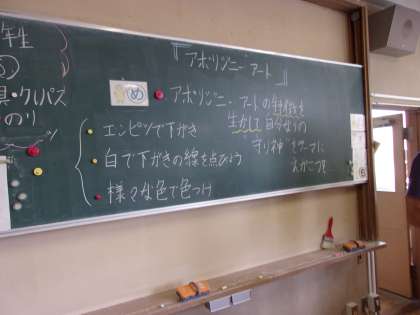 『アボリジニーアート』
年生
具・クレパス
のり
め アボリジニーアートの特徴を
生かして自分なりの
守り神をテーマに
えがこう!!
エンピツで下がき
白で下がきの線を点びょう
様々な色で色つけ